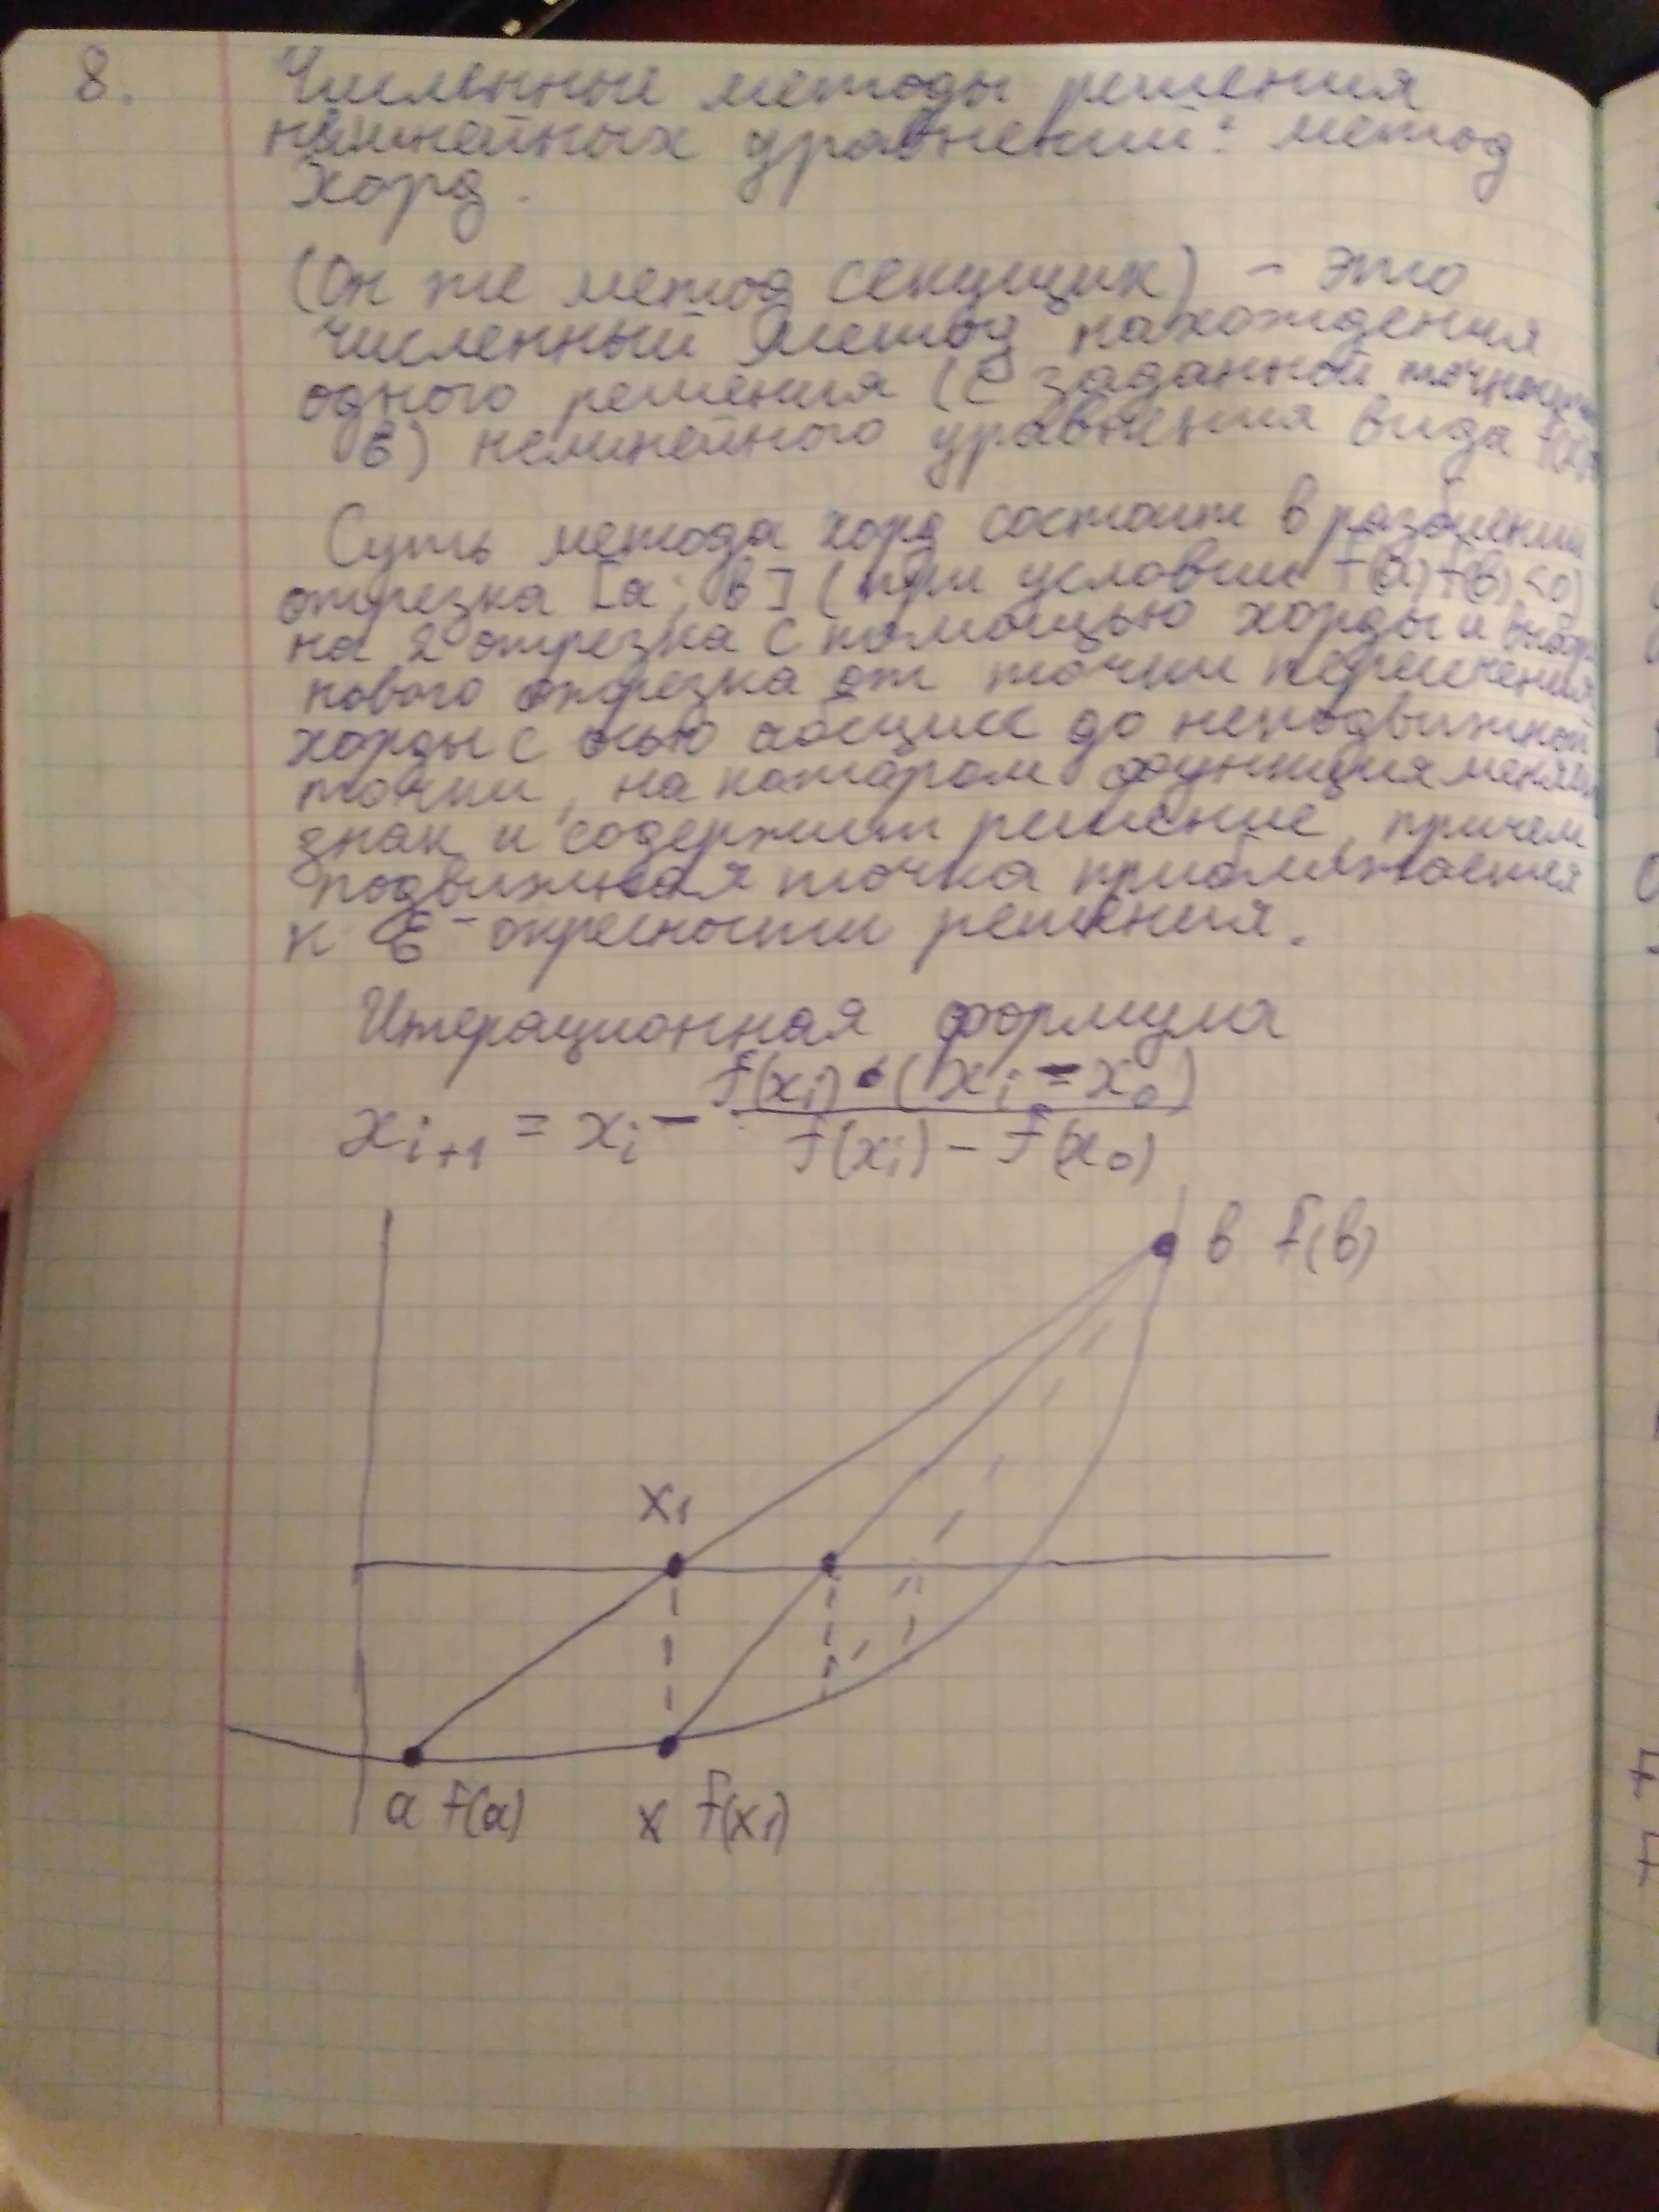 8. Численные методы решения
нелинейных уравнений: метод
Хорд.
(Он же метод секущих) - это
численный метод нахождения
одного решения (с заданной
ε) нелинейного уравнения вида
Суть метода хорд состоит в разбиении
отрезка [a; b] (при условии f(a) f(b) <0)
на 2 отрезка с помощью хорды и
нового отрезка от точки пересечения
хорды с осью абсцисс до неподвижной
точки, на котором функция
знак и содержит решение, причем
подвижная точка приближается
к ε-окрестности решения.
Итерационная формула
x_{i+1} = x_i - \frac{f(x_i) \cdot (x_i - x_0)}{f(x_i) - f(x_0)}
b f(b)
x1
a f(a) x f(x1)